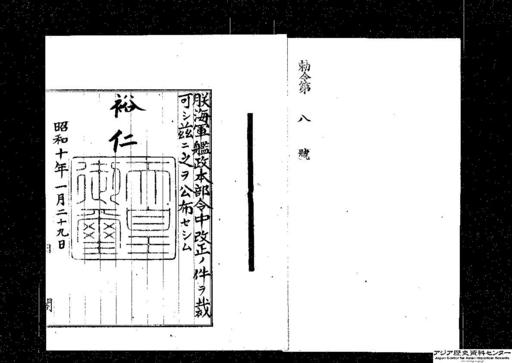 勅令第八號
朕海軍艦政本部令中改正ノ件ヲ裁
可シ茲ニ之ヲ公布セシム
裕仁
天皇御璽
昭和十年一月二十九日
アジア歴史資料センター
Japan Center for Asian Historical Records